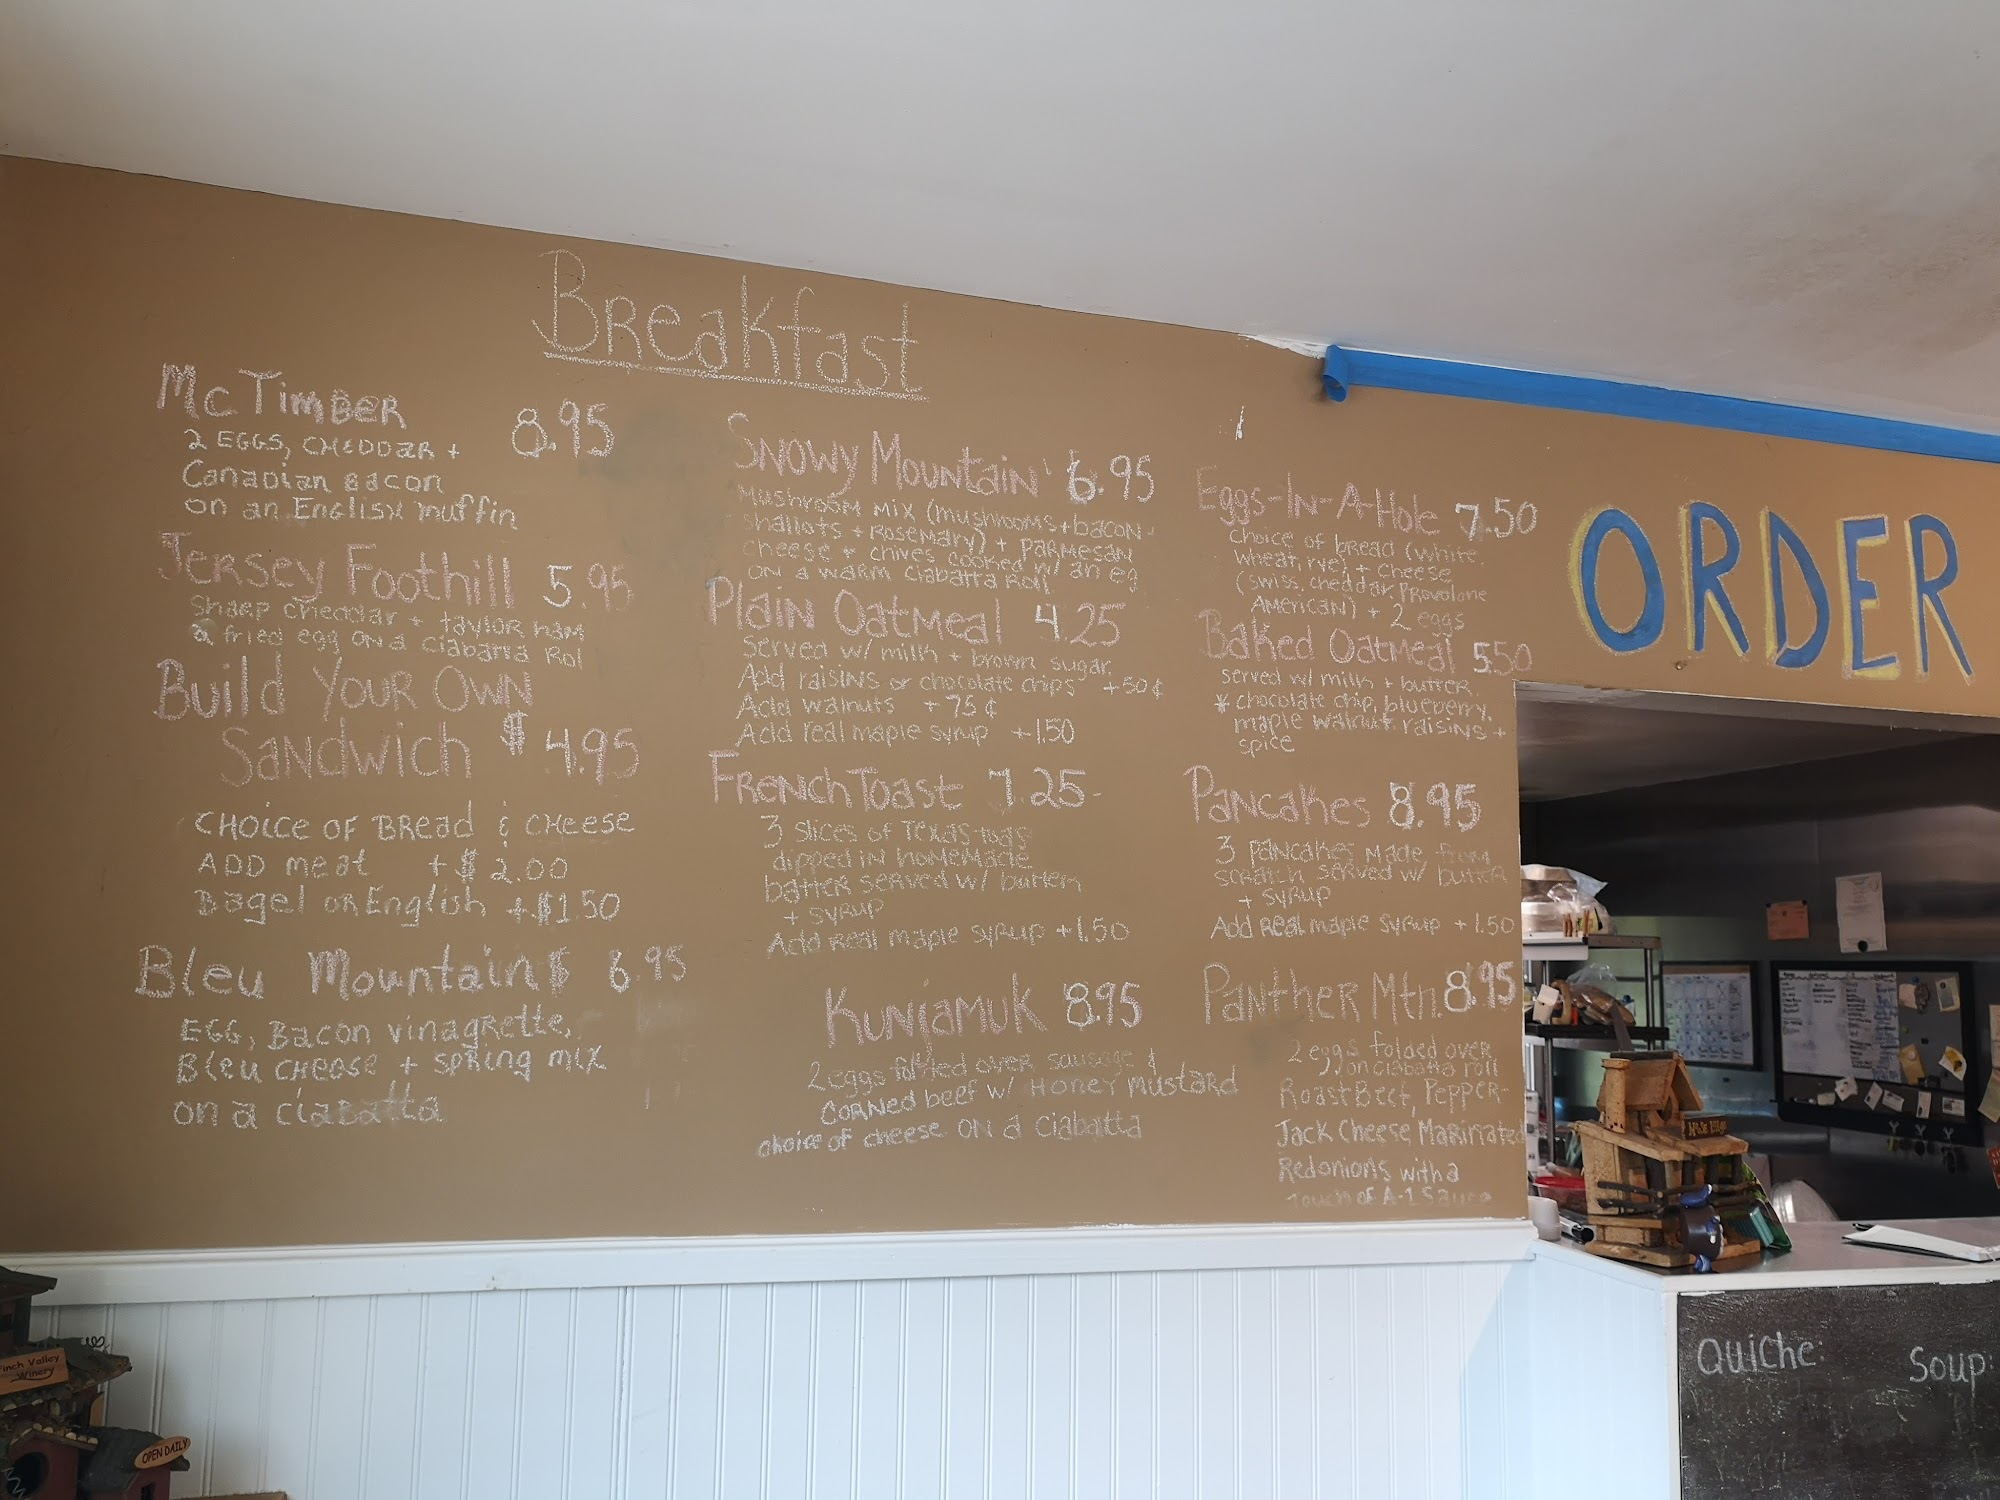 Breakfast
McTimber 8.95
2 EGGS, CHEDDAR +
Canadian Bacon
on an English muffin
Jersey Foothill 5.95
Sharp cheddar + taylor ham
a fried egg on a ciabatta Rol
Build Your Own
Sandwich $4.95
CHOICE OF BREAD & CHEESE
ADD meat +$2.00
Bagel or English +$1.50
Bleu Mountain $6.95
EGG, Bacon vinagrette,
Bleu cheese + spring mix
on a ciabatta
Snowy Mountain 6.95
Mushroom mix (mushrooms + bacon
shallots + Rosemary) + Parmesan
cheese + chives cooked w/ an eg
on a warm ciabatta Roll
Plain Oatmeal 4.25
served w/ milk + brown sugar
Add raisins or chocolate chips +50¢
Add walnuts +75¢
Add real maple syrup +1.50
French Toast 7.25
3 slices of Texas
dipped in homemade
batter served w/ butter
+ syrup
Add Real maple syrup +1.50
Kunjamuk 8.95
2 eggs folded over sausage &
corned beef w/ Honey Mustard
choice of cheese on a ciabatta
Eggs-In-A-Hole 7.50
choice of bread (white
wheat, rye) + cheese
(swiss, cheddar, Provolone
American) + 2 eggs
Baked Oatmeal 5.50
served w/ milk + butter
* chocolate chip, blueberry,
maple walnut, raisins +
spice
Pancakes 8.95
3 pancakes made from
scratch served w/ butter
+ syrup
Add Real maple syrup +1.50
Panther Mtn. 8.95
2 eggs folded over
on ciabatta roll
Roast Beef, Pepper-
Jack Cheese, Marinated
Red onions with a
touch of A-1 Sauce
ORDER
Quiche:
Soup:
Finch Valley
Winery
OPEN DAILY